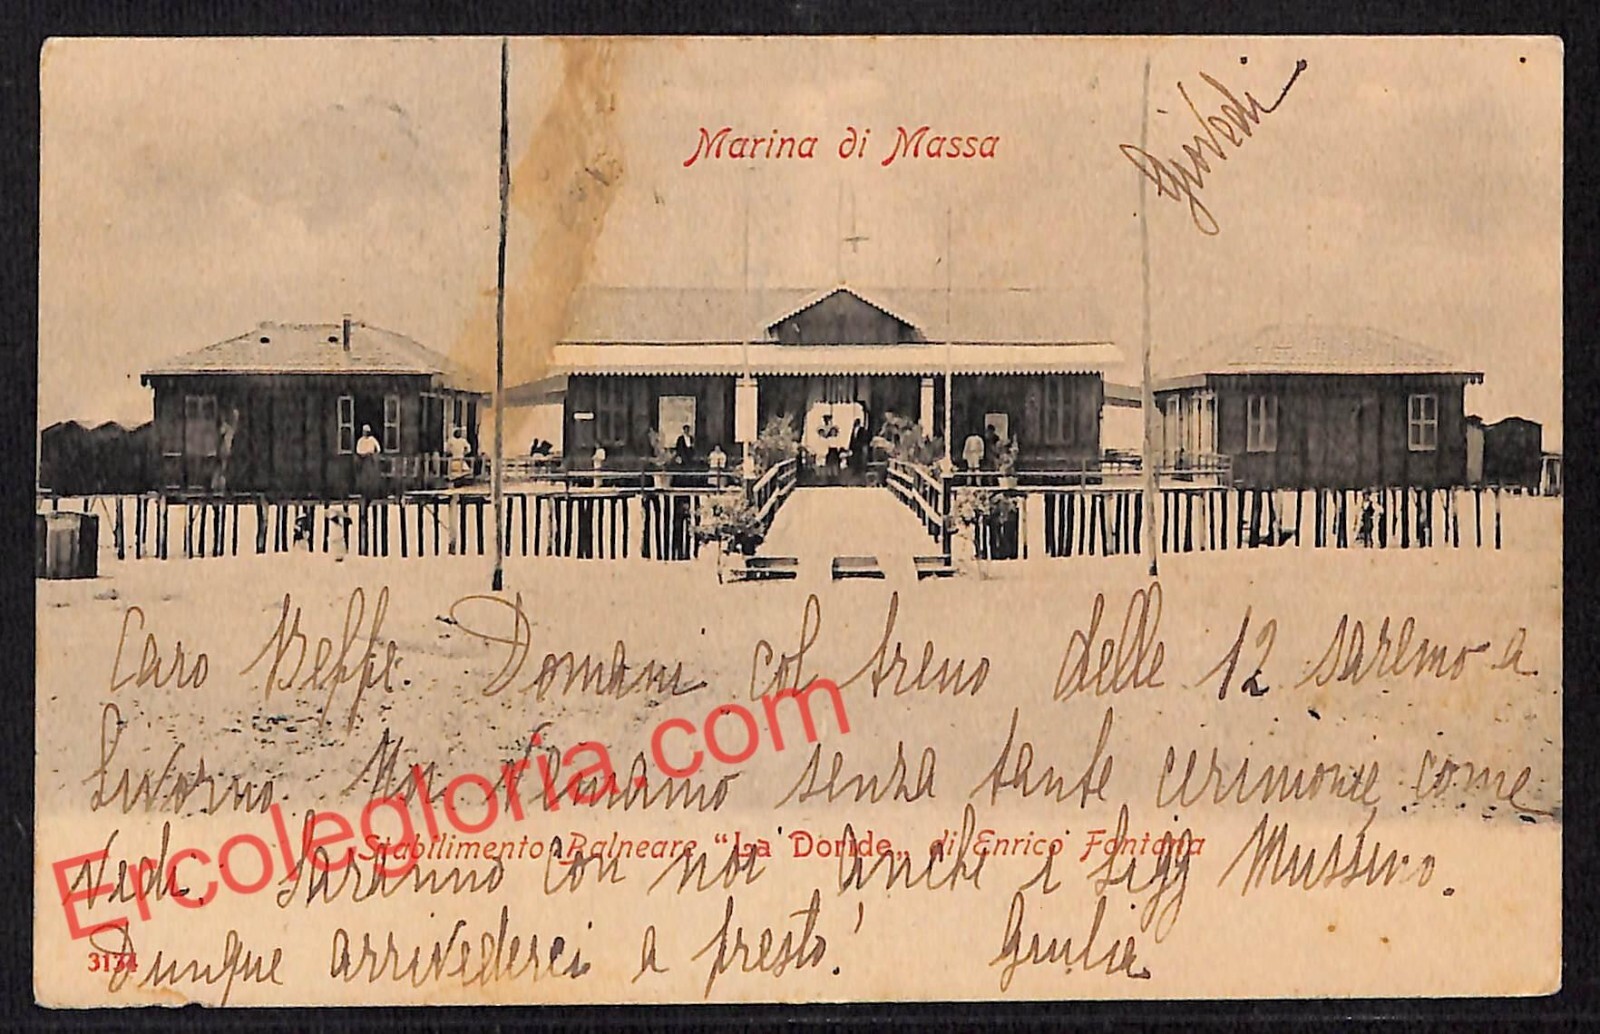 Marina di Massa
Giovedì
Caro Beppe. Domani col treno delle 12 saremo a
Livorno. Noi veniamo senza tante cerimonie come
vedi. Saranno con noi anche i Sigg Mussino.
Stabilimento Balneare "La Doride„ di Enrico Fontana
Dunque arrivederci a presto! Giulia
3134
Ercolegloria.com